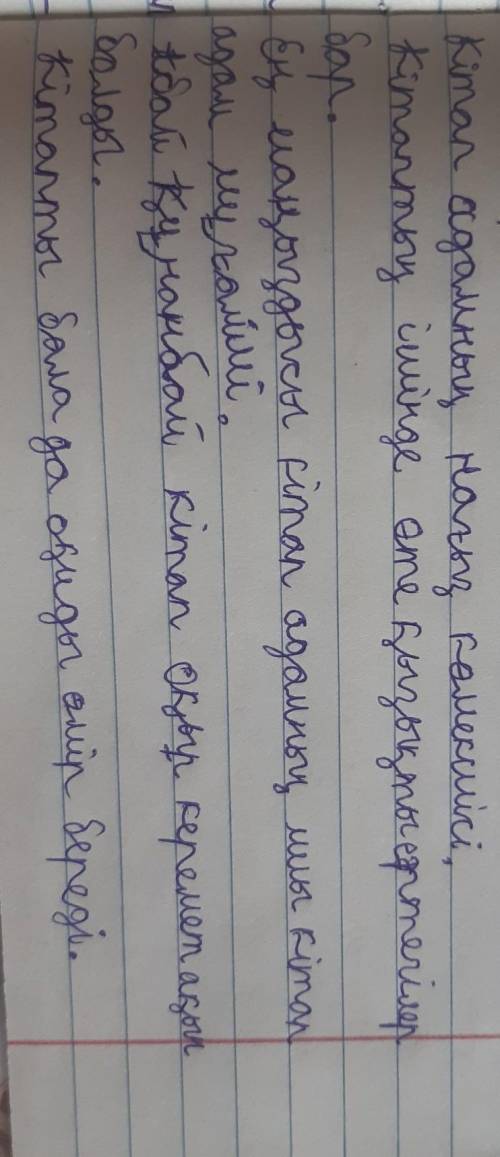 Кітап адамның нағыз көмекшісі,
Кітаптың ішінде өте қызықты ертегілер
бар.
Ең маңыздысы кітап адамның мы кітап
адам мұғалімі.
Абай Құнанбай кітап оқып керемет ақын
болды.
Кітапты бала да оқиды өмір береді.